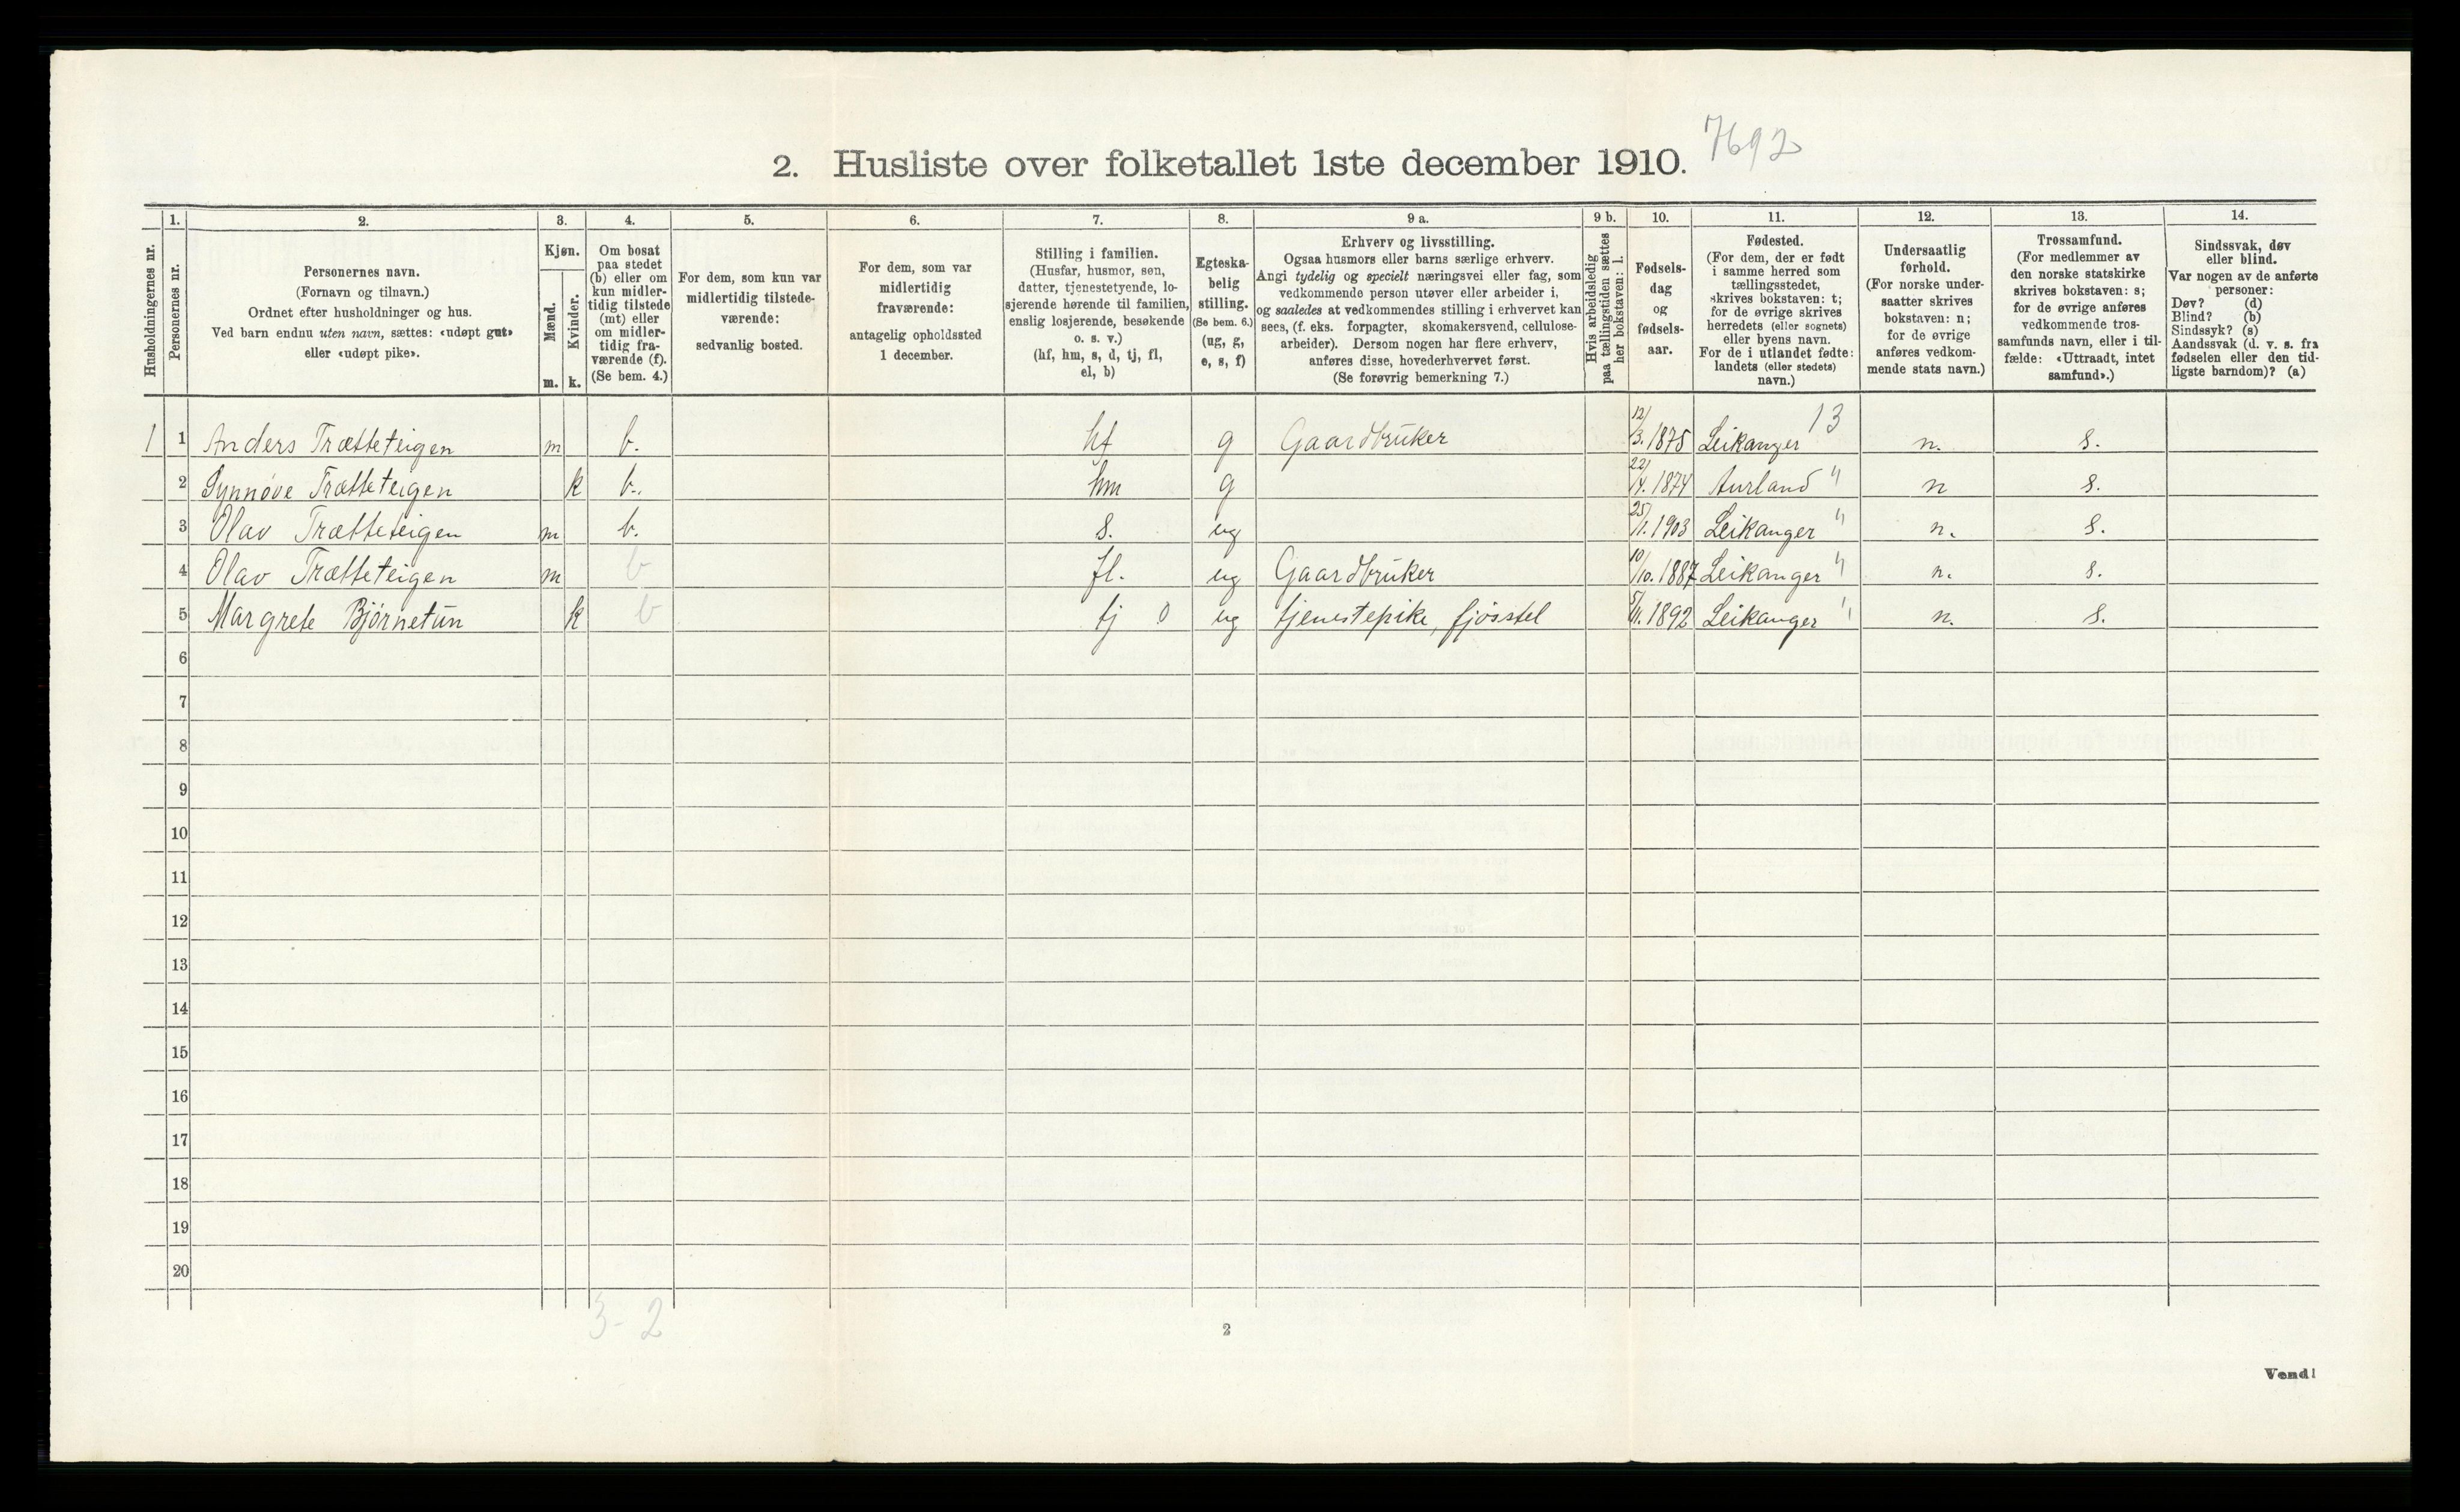 7692
2. Husliste over folketallet 1ste december 1910.
Husholdningernes nr.
1.
Personernes nr.
2.
Personernes navn.
(Fornavn og tilnavn.)
Ordnet efter husholdninger og hus.
Ved barn endnu uten navn, sættes: «udøpt gut»
eller «udøpt pike».
3.
Kjøn.
Mænd.
Kvinder.
m. k.
4.
Om bosat
paa stedet
(b) eller om
kun midler-
tidig tilstede
(mt) eller
om midler-
tidig fra-
værende (f).
(Se bem. 4.)
5.
For dem, som kun var
midlertidig tilstede-
værende:
sedvanlig bosted.
6.
For dem, som var
midlertidig
fraværende:
antagelig opholdssted
1 december.
7.
Stilling i familien.
(Husfar, husmor, søn,
datter, tjenestetyende, lo-
sjerende hørende til familien,
enslig losjerende, besøkende
o. s. v.)
(hf, hm, s, d, tj, fl,
el, b)
8.
Egteska-
belig
stilling.
(Se bem. 6.)
(ug, g,
e, s, f)
9 a.
Erhverv og livsstilling.
Ogsaa husmors eller barns særlige erhverv.
Angi tydelig og specielt næringsvei eller fag, som
vedkommende person utøver eller arbeider i,
og saaledes at vedkommendes stilling i erhvervet kan
sees, (f. eks. forpagter, skomakersvend, cellulose-
arbeider). Dersom nogen har flere erhverv,
anføres disse, hovederhvervet først.
(Se forøvrig bemerkning 7.)
9 b.
Hvis arbeidsledig
paa tællingstiden sættes
her bokstaven: l.
10.
Fødsels-
dag
og
fødsels-
aar.
11.
Fødested.
(For dem, der er født
i samme herred som
tællingsstedet,
skrives bokstaven: t;
for de øvrige skrives
herredets (eller sognets)
eller byens navn.
For de i utlandet fødte:
landets (eller stedets)
navn.)
12.
Undersaatlig
forhold.
(For norske under-
saatter skrives
bokstaven: n;
for de øvrige
anføres vedkom-
mende stats navn.)
13.
Trossamfund.
(For medlemmer av
den norske statskirke
skrives bokstaven: s;
for de øvrige anføres
vedkommende tros-
samfunds navn, eller i til-
fælde: «Uttraadt, intet
samfund».)
14.
Sindssvak, døv
eller blind.
Var nogen av de anførte
personer:
Døv? (d)
Blind? (b)
Sindssyk? (s)
Aandssvak (d. v. s. fra
fødselen eller den tid-
ligste barndom)? (a)
13
1 1 Anders Trætteteigen m b. hf g Gaardbruker 12/3. 1875 Leikanger n. s.
2 Synnøve Trætteteigen k b. hm g 22/4. 1874 Aurland " n s.
3 Olav Trætteteigen m b. s. ug 25/1. 1903 Leikanger " n. s.
4 Olav Trætteteigen m b fl. ug Gaardbruker 10/10. 1887 Leikanger " n. s.
5 Margrete Bjørnetun k b tj 0 ug tjenestepike, fjøsstel 5/11. 1892 Leikanger " n. s.
6
7
8
9
10
11
12
13
14
15
16
17
18
19
20
3-2
2
Vend!